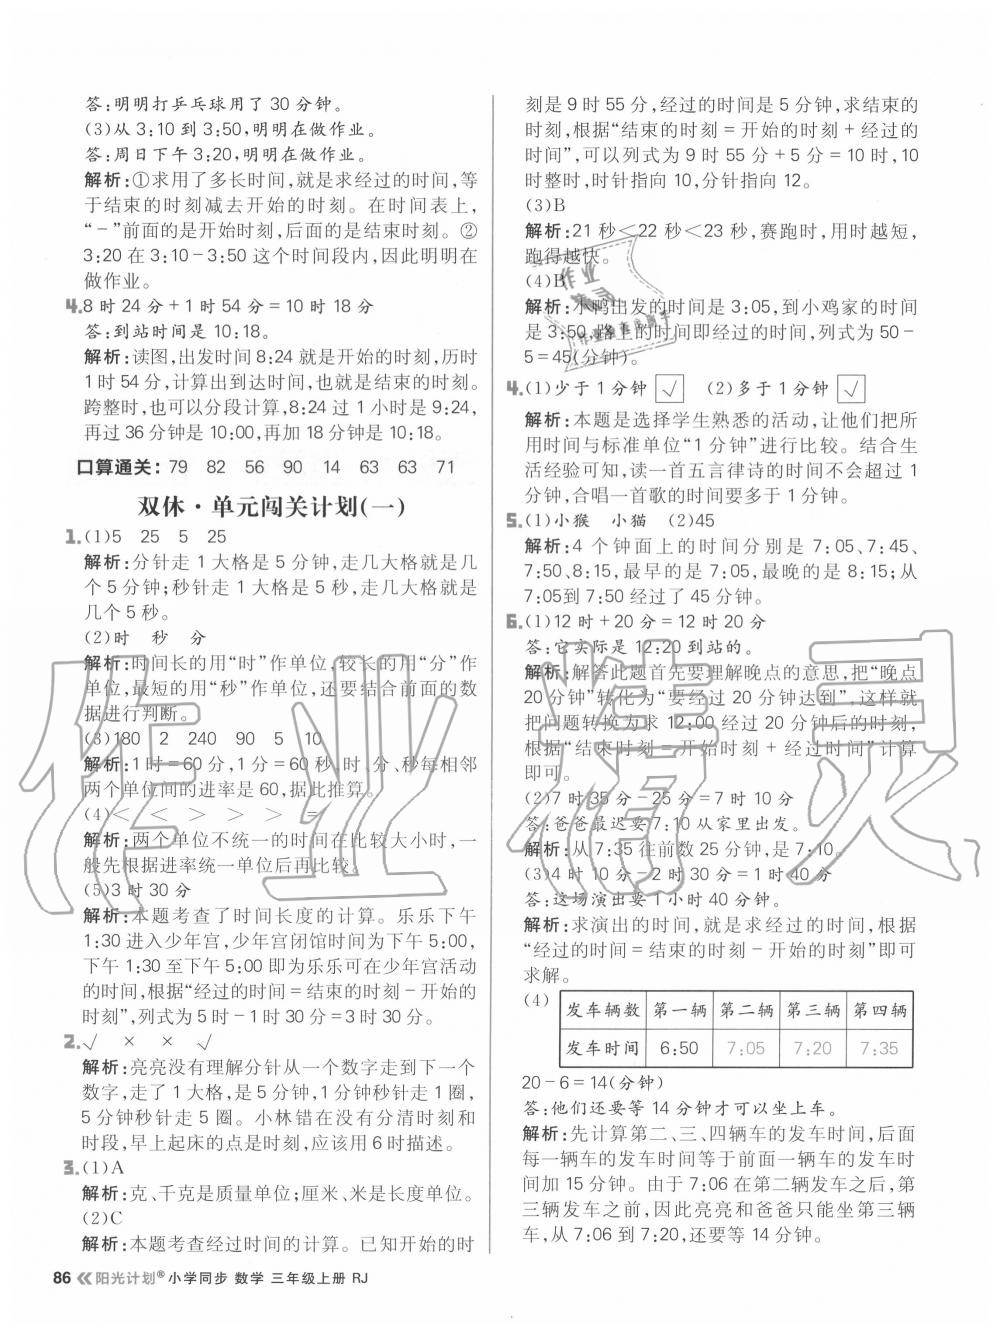 答:明明打乒乓球用了 30 分钟。
(3)从 3:10 到 3:50,明明在做作业。
答:周日下午 3:20,明明在做作业。
解析:①求用了多长时间,就是求经过的时间,等
于结束的时刻减去开始的时刻。在时间表上,
“－”前面的是开始时刻,后面的是结束时刻。②
3:20 在 3:10－3:50 这个时间段内,因此明明在
做作业。
4.8 时 24 分＋1 时 54 分＝10 时 18 分
答:到站时间是 10:18。
解析:读图,出发时间 8:24 就是开始时刻,历时
1 时 54 分,计算出到达时间,也就是结束的时刻。
跨整时,也可以分段计算,8:24 过 1 小时是 9:24,
再过 36 分钟是 10:00,再加 18 分钟是 10:18。
口算通关: 79 82 56 90 14 63 63 71
双休·单元闯关计划(一)
1.(1)5 25 5 25
解析:分针走 1 大格是 5 分钟,走几大格就是几
个 5 分钟;秒针走 1 大格是 5 秒,走几大格就是
几个 5 秒。
(2)时 秒 分
解析:时间长的用“时”作单位,较长的用“分”作
单位,最短的用“秒”作单位,还要结合前面的数
据进行判断。
(3)180 2 240 90 5 10
解析:1 时＝60 分,1 分＝60 秒,时、分、秒每相邻
两个单位间的进率是 60,据此推算。
(4)＜ ＜ ＞ ＞ ＞ ＝
解析:两个单位不统一的时间在比较大小时,一
般先根据进率统一单位后再比较。
(5)3 时 30 分
解析:本题考查了时间长度的计算。乐乐下午
1:30 进入少年宫,少年宫闭馆时间为下午 5:00,
下午 1:30 至下午 5:00 即为乐乐可在少年宫活动
的时间,根据“经过的时间＝结束的时刻－开始的
时刻”,列式为 5 时－1 时 30 分＝3 时 30 分。
2.√ × × √
解析:亮亮没有理解分针从一个数字走到下一个
数字,走了 1 大格,是 5 分钟,1分钟秒针走 1 圈,
5 分钟秒针走 5 圈。小林错在没有分清时刻和
时段,早上起床的点是时刻,应该用 6 时描述。
3.(1)A
解析:克、千克是质量单位;厘米、米是长度单位。
(2)C
解析:本题考查经过时间的计算。已知开始的时
刻是 9 时 55 分,经过的时间是 5 分钟,求结束的
时刻,根据“结束的时刻＝开始的时刻＋经过的
时间”,可以列式为 9 时 55 分＋5 分＝10 时,10
时整时,时针指向 10,分针指向 12。
(3)B
解析:21 秒＜22 秒＜23 秒,赛跑时,用时越短,
跑得越快。
(4)B
解析:小鸭出发的时间是 3:05,到小鸡家的时间
是 3:50,路上的时间即经过的时间,列式为 50－
5＝45(分钟)。
4.(1)少于 1 分钟 √ (2)多于 1 分钟 √
解析:本题是选择学生熟悉的活动,让他们把所
用时间与标准单位“1 分钟”进行比较。结合生
活经验可知,读一首五言律诗的时间不会超过 1
分钟,合唱一首歌的时间要多于 1 分钟。
5.(1)小猴 小猫 (2)45
解析:4 个钟面上的时间分别是 7:05、7:45、
7:50、8:15,最早的是 7:05,最晚的是 8:15;从
7:05到 7:50 经过了 45 分钟。
6.(1)12 时＋20 分＝12 时 20 分
答:它实际是 12:20 到站的。
解析:解答此题首先要理解晚点的意思,把“晚点
20 分钟”转化为“要经过 20 分钟达到”,这样就
把问题转换为求 12:00 经过 20 分钟后的时刻,
根据“结束时刻＝开始时刻＋经过时间”计算
即可。
(2)7 时 35 分－25 分＝7 时 10 分
答:爸爸最迟要 7:10 从家里出发。
解析:从 7:35 往前数 25 分钟,是 7:10。
(3)4 时 10 分－2 时 30 分＝1 时 40 分
答:这场演出要 1 小时 40 分钟。
解析:求演出的时间,就是求经过的时间,根据
“经过的时间＝结束的时刻－开始的时刻”即可
求解。
(4)
发车辆数 第一辆 第二辆 第三辆 第四辆
发车时间 6:50 7:05 7:20 7:35
20－6＝14(分钟)
答:他们还要等 14 分钟才可以坐上车。
解析:先计算第二、三、四辆车的发车时间,后面
每一辆车的发车时间等于前面一辆车的发车时
间加 15 分钟。由于 7:06 在第二辆车之后,第
三辆车发车之前,因此亮亮和爸爸只能坐第三辆
车,从 7:06 到 7:20,还要等 14 分钟。
86 阳光计划®小学同步 数学 三年级上册 RJ
作业精灵